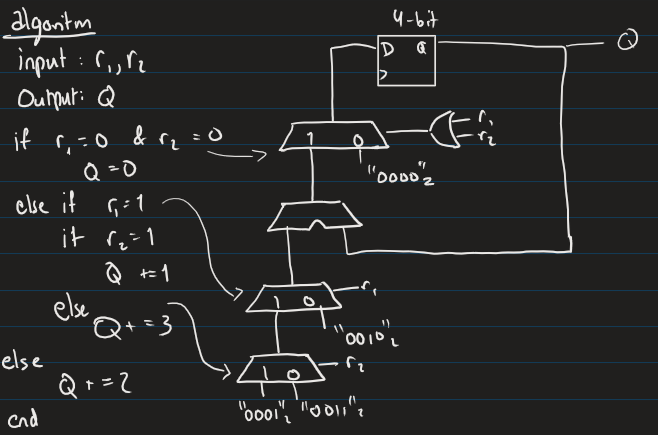 algoritm
input : r₁, r₂
Output: Q
if r₁=0 & r₂=0
Q=0
else if r₁=1
if r₂=1
Q +=1
else
Q+=3
else
Q+=2
end
4-bit
D Q
Q
1 0
r₁
r₂
"0000"₂
1 0
r₁
"0010"₂
1 0
r₂
"0001"₂ "0011"₂